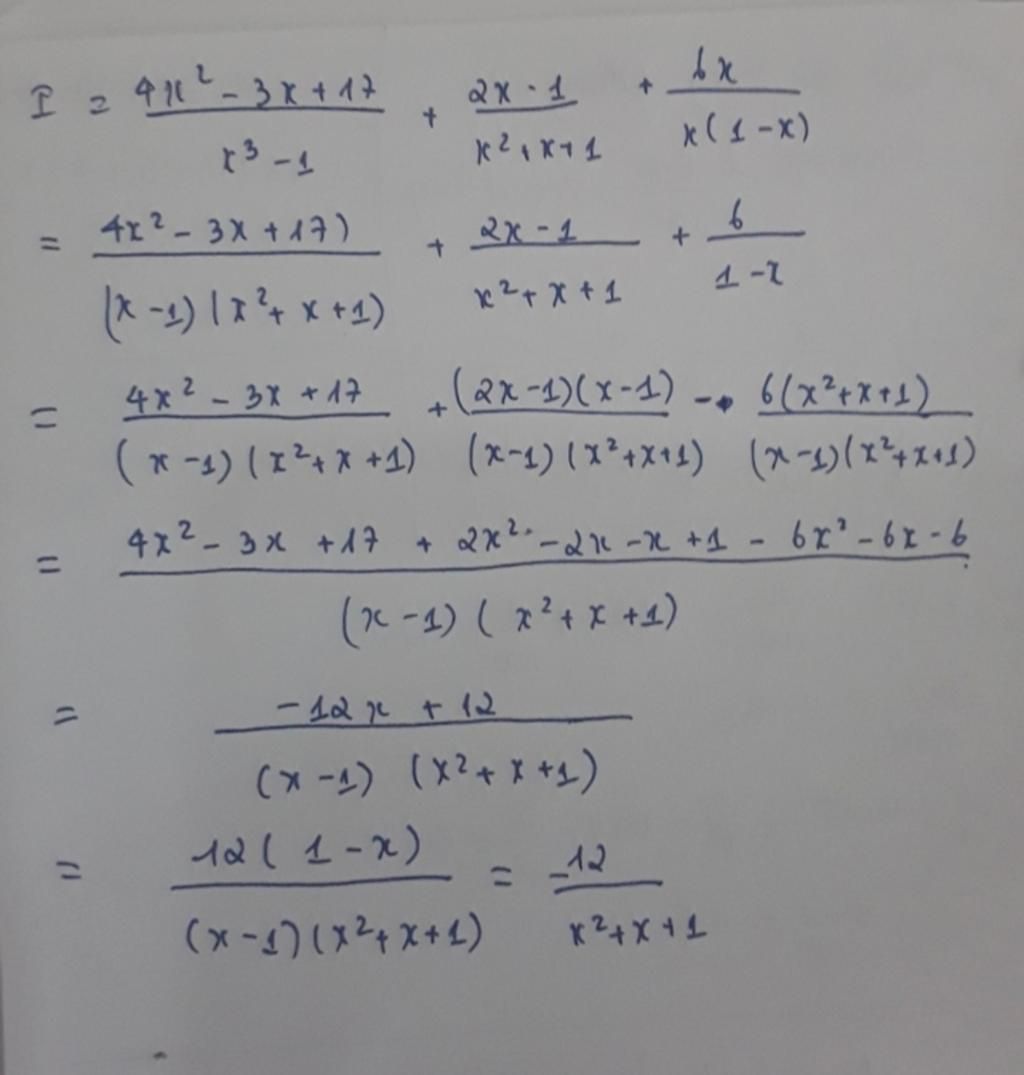 I = (4x² - 3x + 17)/(x³ - 1) + (2x - 1)/(x² + x + 1) + 6x/(x(1 - x))
= (4x² - 3x + 17))/((x - 1)(x² + x + 1)) + (2x - 1)/(x² + x + 1) + 6/(1 - x)
= (4x² - 3x + 17)/((x - 1)(x² + x + 1)) + ((2x - 1)(x - 1))/((x - 1)(x² + x + 1)) - (6(x² + x + 1))/((x - 1)(x² + x + 1))
= (4x² - 3x + 17 + 2x² - 2x - x + 1 - 6x² - 6x - 6)/((x - 1)(x² + x + 1))
= (-12x + 12)/((x - 1)(x² + x + 1))
= (12(1 - x))/((x - 1)(x² + x + 1)) = -12/(x² + x + 1)